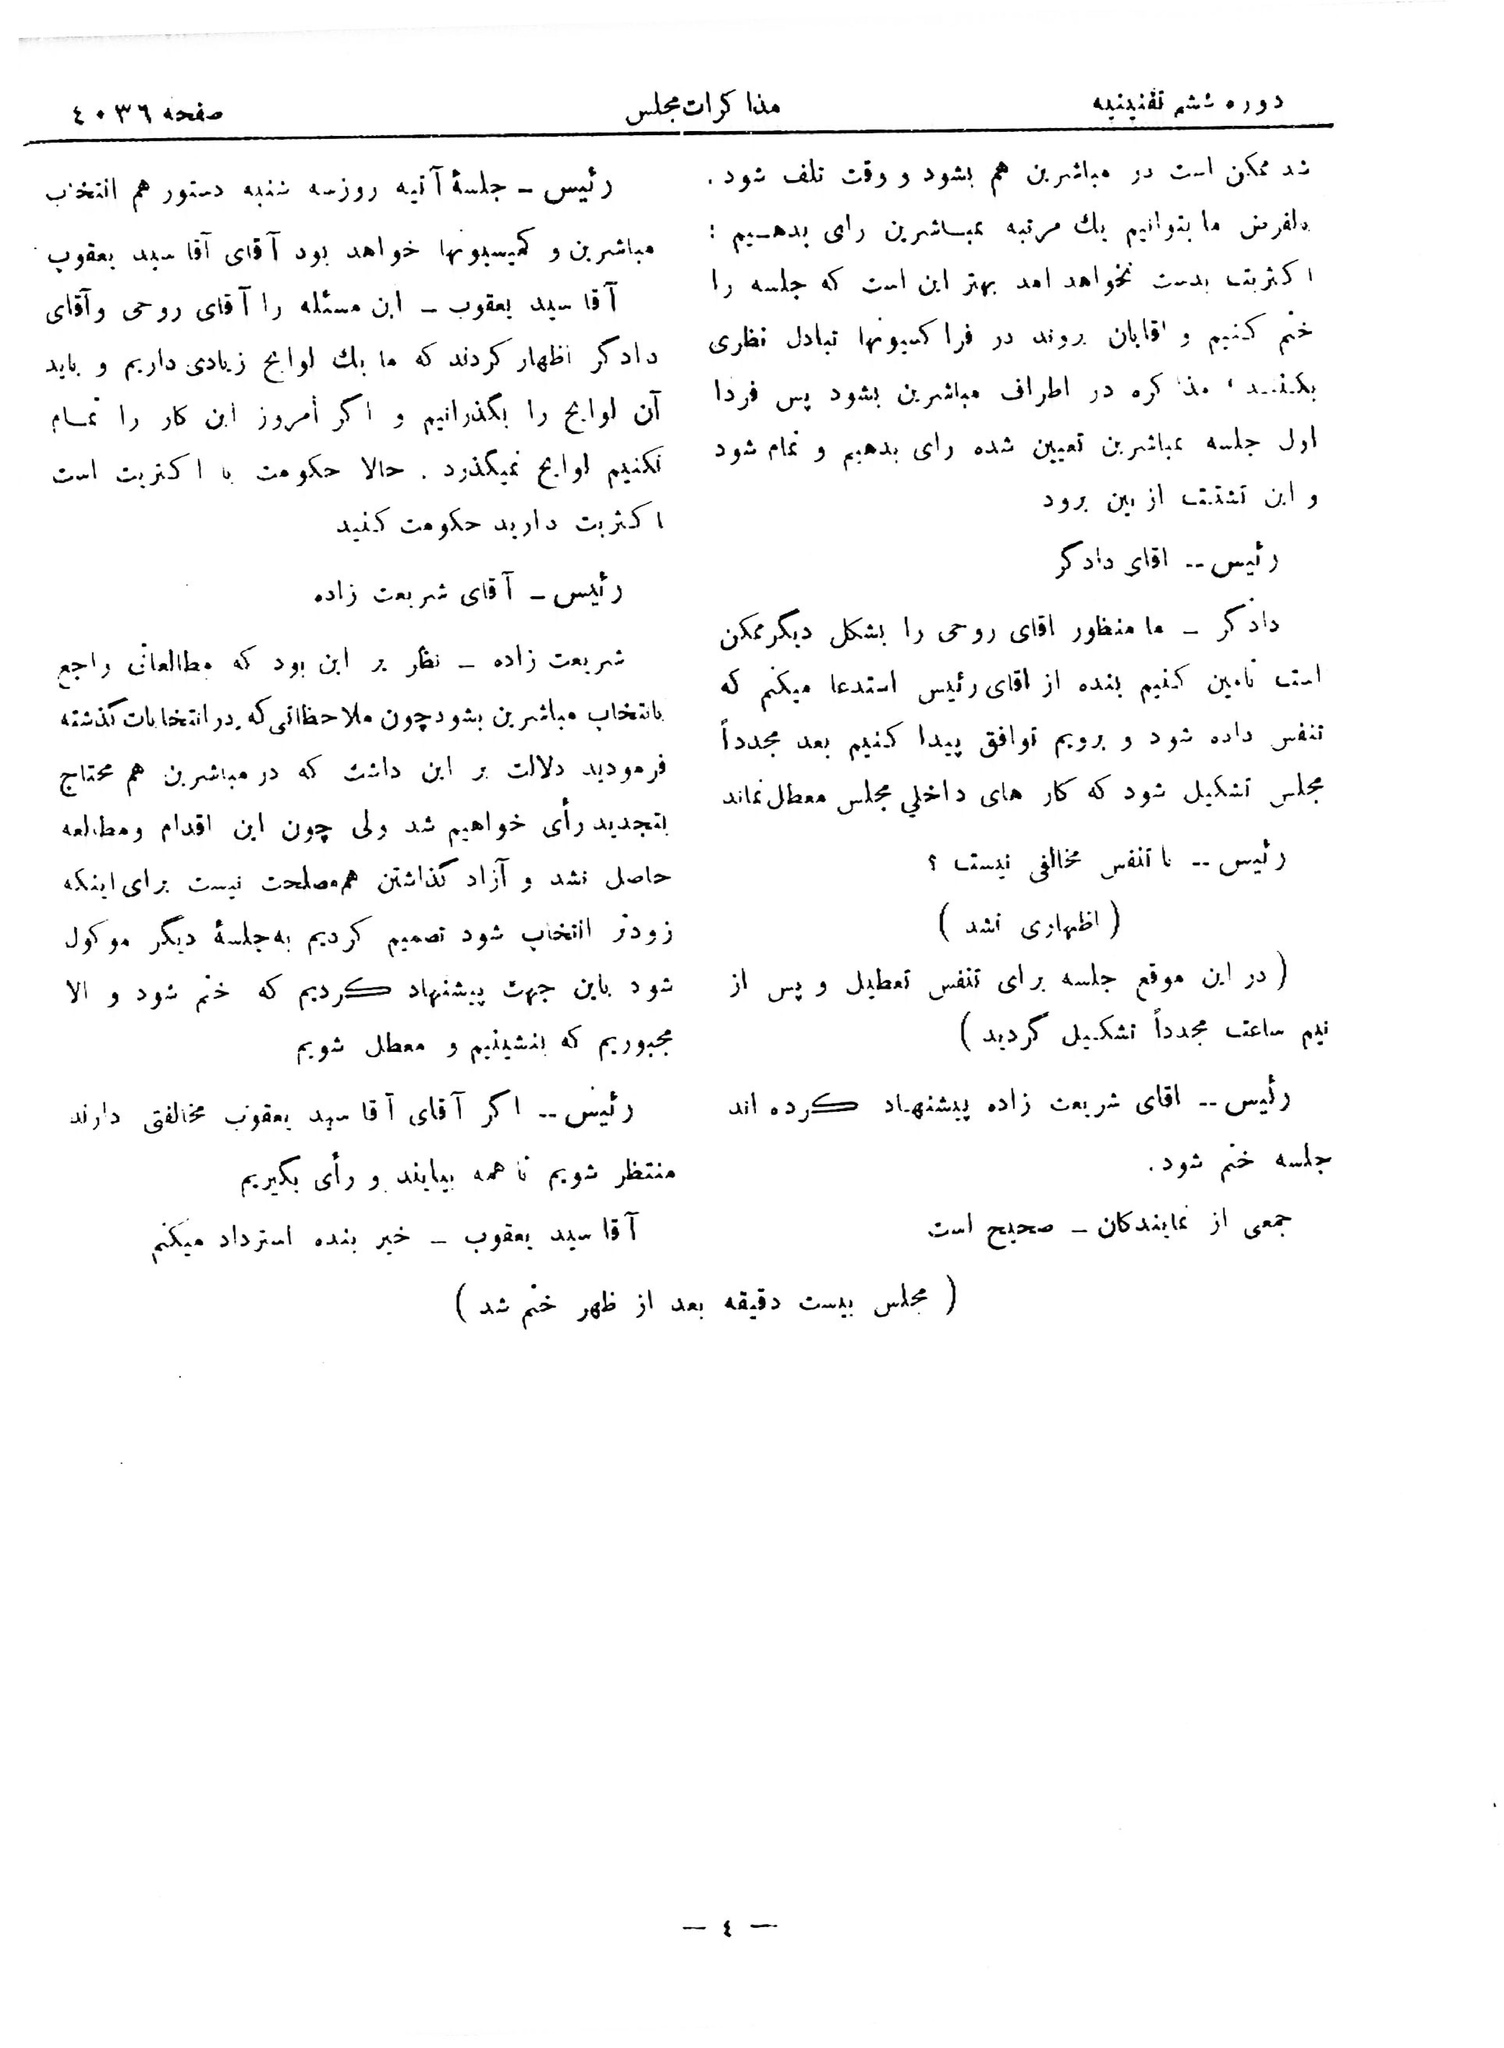 دوره ششم تقنینیه
مذاکرات مجلس
صفحه ٤٠٣٦
شد ممکن است در مباشرین هم بشود و وقت تلف شود .
بالفرض ما بتوانیم یك مرتبه بمباشرین رای بدهیم :
اکثریت بدست نخواهد امد بهتر این است که جلسه را
ختم کنیم و اقایان بروند در فراکسیونها تبادل نظری
بکنند ، مذاکره در اطراف مباشرین بشود پس فردا
اول جلسه بمباشرین تعیین شده رای بدهیم و تمام شود
و این تشتت از بین برود
رئیس -- اقای دادگر
دادگر – ما منظور اقای روحی را بشکل دیگر ممکن
است تامین کنیم بنده از اقای رئیس استدعا میکنم که
تنفس داده شود و برویم توافق پیدا کنیم بعد مجدداً
مجلس تشکیل شود که کار های داخلي مجلس معطل نماند
رئیس -- با تنفس مخالفی نیست ؟
( اظهاری نشد )
( در این موقع جلسه برای تنفس تعطیل و پس از
نیم ساعت مجدداً تشکیل گردید )
رئیس -- اقای شریعت زاده پیشنهاد کرده اند
جلسه ختم شود.
جمعی از نمایندکان – صحیح است
رئیس – جلسهٔ آتیه روز سه شنبه دستور هم انتخاب
مباشرین و کمیسیونها خواهد بود آقای آقا سید یعقوب
آقا سید یعقوب – این مسئله را آقای روحی و آقای
دادگر اظهار کردند که ما یك لوایح زیادی داریم و باید
آن لوایح را بگذرانیم و اگر أمروز این کار را تمام
نکنیم لوایح نمیگذرد . حالا حکومت با اکثریت است
اکثریت دارید حکومت کنید
رئیس – آقای شریعت زاده
شریعت زاده – نظر بر این بود که مطالعاتی راجع
بانتخاب مباشرین بشود چون ملاحظاتی که در انتخابات گذشته
فرمودید دلالت بر این داشت که در مباشرین هم محتاج
بتجدید رأی خواهیم شد ولی چون این اقدام و مطالعه
حاصل نشد و آزاد گذاشتن هم مصلحت نیست برای اینکه
زودتر انتخاب شود تصمیم کردیم به جلسهٔ دیگر موکول
شود باین جهت پیشنهاد کردیم که ختم شود و الا
مجبوریم که بنشینیم و معطل شویم
رئیس -- اگر آقای آقا سید یعقوب مخالفتی دارند
منتظر شویم تا همه بیایند و رأی بگیریم
آقا سید یعقوب – خیر بنده استرداد میکنم
( مجلس بیست دقیقه بعد از ظهر ختم شد )
— ٤ —